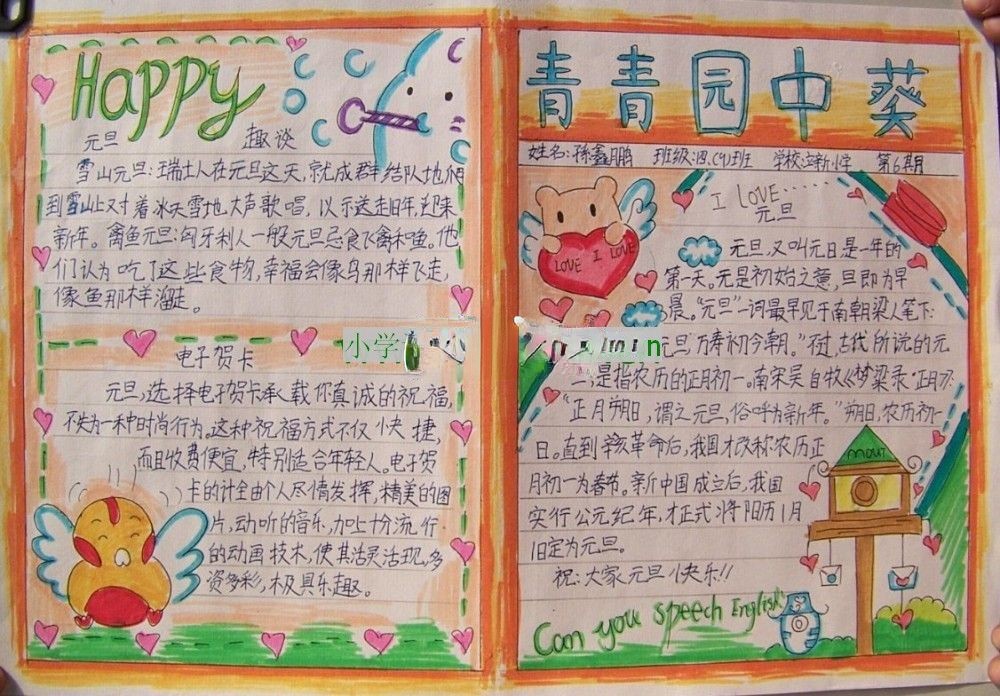 Happy
元旦 趣谈
雪山元旦:瑞士人在元旦这天,就成群结队地们
到雪山上对着冰天雪地大声歌唱,以示送走旧年,迎来
新年。禽鱼元旦:匈牙利人一般元旦忌食飞禽和鱼。他
们认为吃了这些食物,幸福会像鸟那样飞走,
像鱼那样溜走。
电子贺卡
元旦,选择电子贺卡承载你真诚的祝福,
不失为一种时尚行为。这种祝福方式不仅快捷,
而且收费便宜,特别适合年轻人。电子贺
卡的计全由个人尽情发挥,精美的图
片,动听的音乐,加上十分流行
的动画技术,使其活灵活现,多
姿多彩,极具乐趣。
小学
青青园中葵
姓名:孙鑫鹏 班级:四.(4)班 学校:立新小学 第6期
I LOVE......
元旦
LOVE I LOVE
元旦,又叫元日是一年的
第一天。元是初始之意,旦即为早
晨。“元旦”一词最早见于南朝梁人笔下:
元旦“万寿初今朝。”不过,古代所说的元
旦,是指农历的正月初一。南宋吴自牧《梦梁录·正月》:
“正月朔日,谓之元旦,俗呼为新年。”朔日,农历初一
日。直到辛亥革命后,我国才改称农历正
月初一为春节。新中国成立后,我国
实行公元纪年,才正式将阳历1月
1日定为元旦。
祝:大家元旦快乐!!
Can you speech English